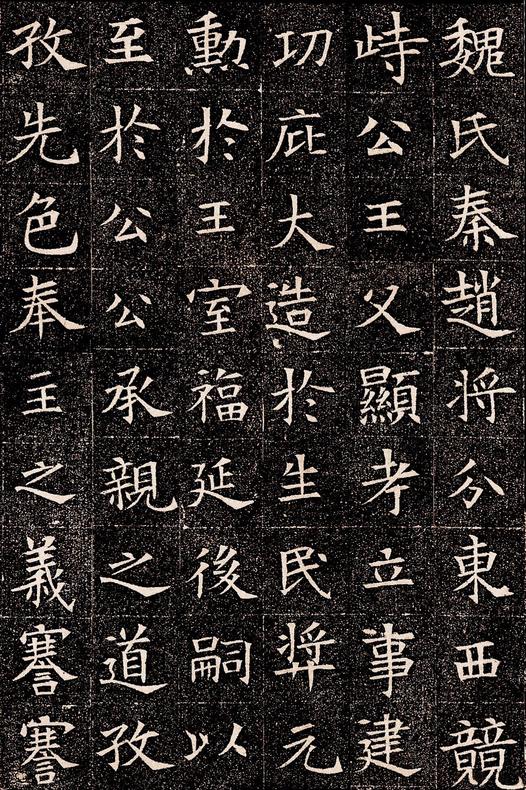 魏氏秦趙将分東西競
峙公王父顯考立事建
功庇大造於生民弉元
勳於王室福延後嗣以
至於公公承親之道孜
孜先色奉主之義謇謇